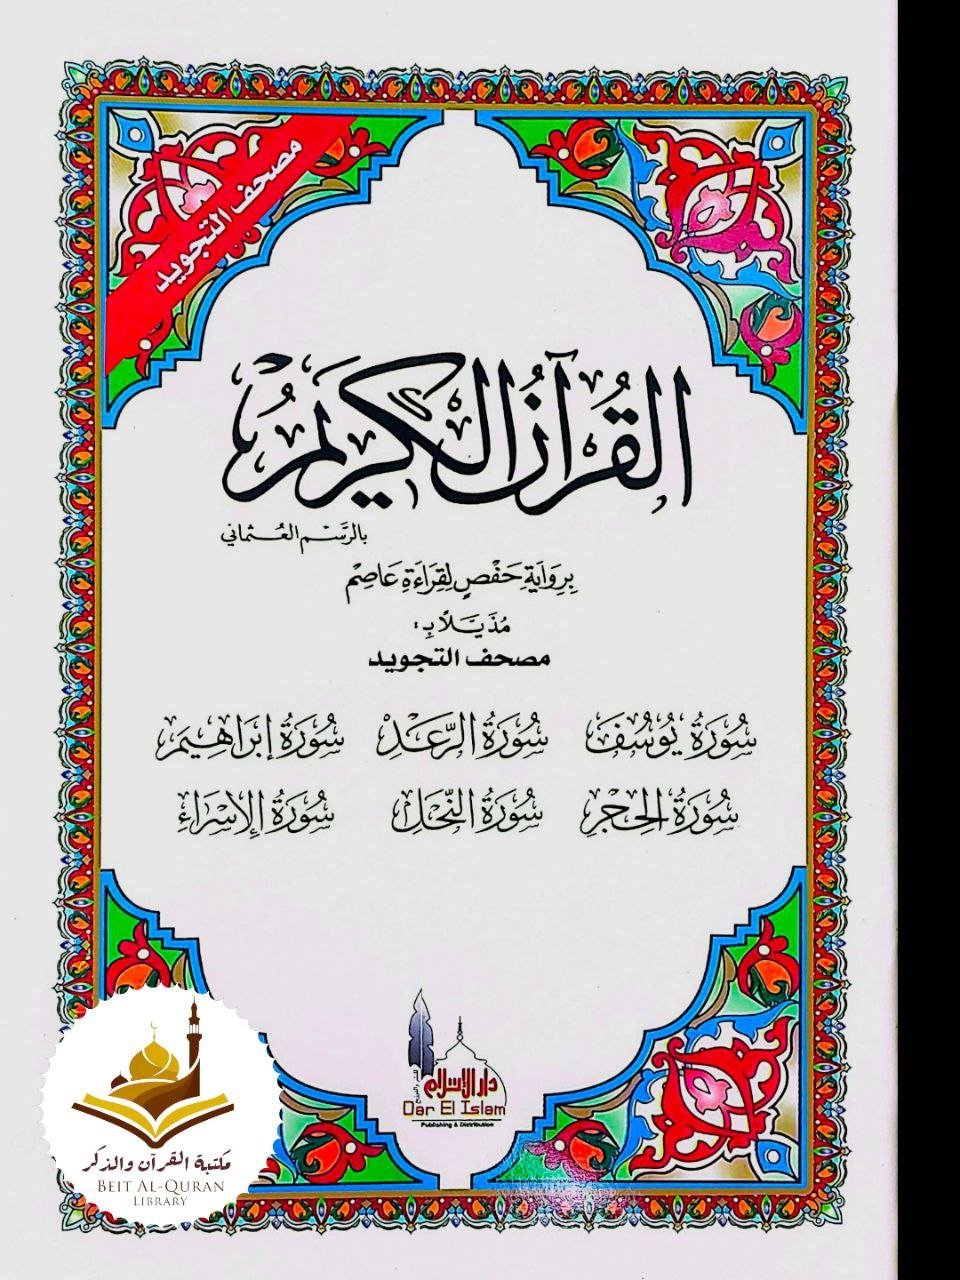 مصحف التجويد
القرآن الكريم
بالرَّسْم العُثماني
بِرِوَايَةِ حَفْصٍ لِقِرَاءَةِ عَاصِمْ
مُذَيَّلاً بـ :
مصحف التجويد
سُورَةُ يُوسُفَ سُورَةُ الرَّعْدِ سُورَةُ إبرَاهِيمَ
سُورَةُ الحِجْرِ سُورَةُ النَّحْلِ سُورَةُ الإسْرَاءِ
دار الإسلام
للنشر والتوزيع
Dar El Islam
Publishing & Distribution
مكتبة القرآن والذكر
BEIT AL-QURAN
LIBRARY